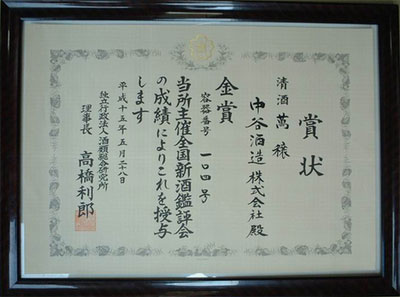 賞状
清酒 萬穣
中谷酒造株式会社殿
金賞
容器番号 一〇四号
当所主催全国新酒鑑評会
の成績によりこれを授与
します
平成十五年五月二十八日
独立行政法人酒類総合研究所
理事長 高橋利郎